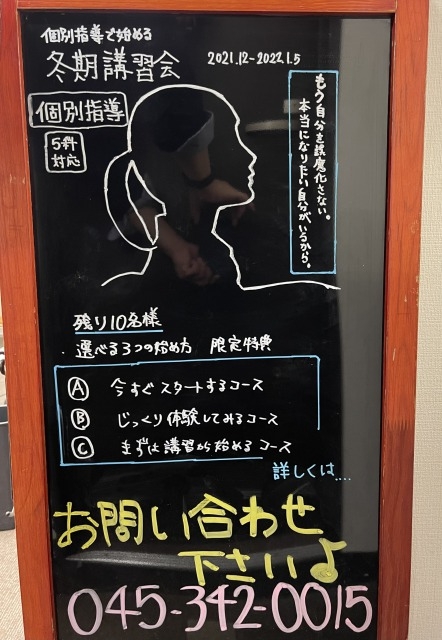 個別指導で始める
冬期講習会
2021.12-2022.1.5
個別指導
5科
対応
もう自分を誤魔化さない。
本当になりたい自分がいるから。
残り10名様
選べる3つの始め方 限定特典
Ⓐ 今すぐスタートするコース
Ⓑ じっくり体験してみるコース
Ⓒ まずは講習から始めるコース
詳しくは....
お問い合わせ
下さいよ
045-342-0015